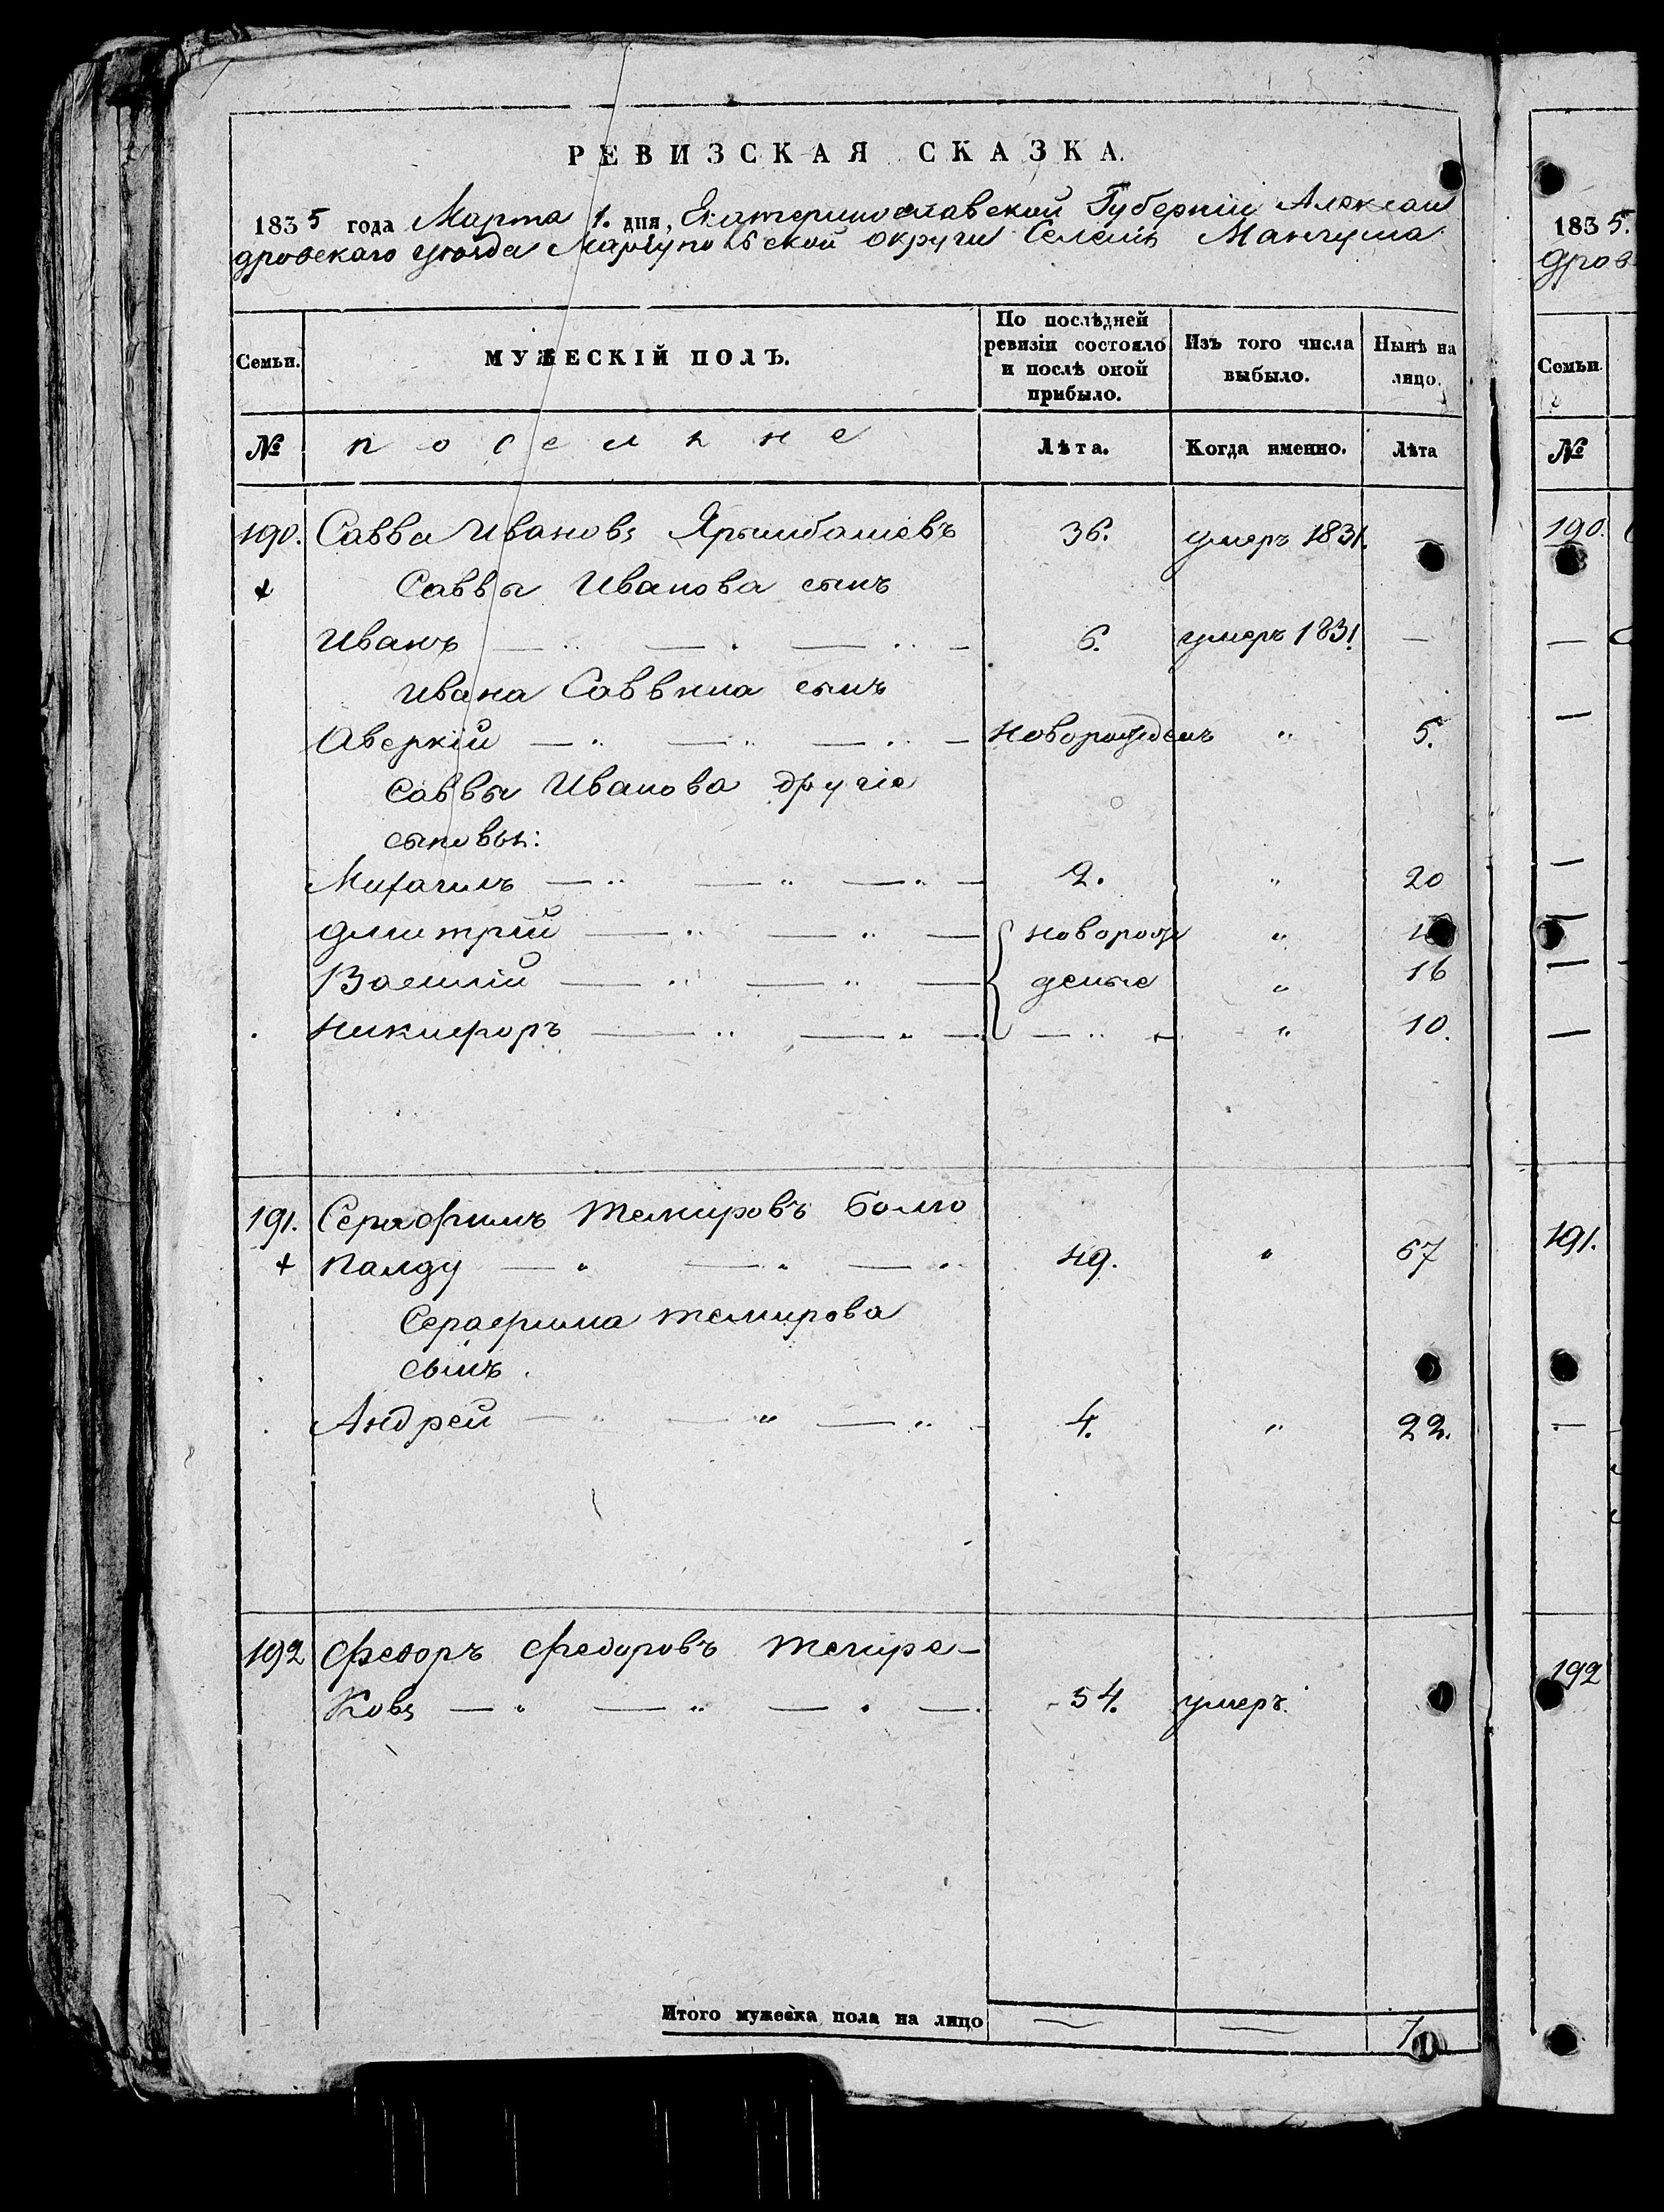 РЕВИЗСКАЯ СКАЗКА.
1835 года Марта 1. дня, Екатеринославской Губерніи Алексан
дровскаго уѣзда Маріупольской округи Селенія Мангуша
Семьи. МУЖЕСКІЙ ПОЛЪ. По послѣдней ревизіи состояло и послѣ оной прибыло. Изъ того числа выбыло. Нынѣ на лицо.
№ поселяне Лѣта. Когда именно. Лѣта
190. Савва Ивановъ Ярымбашевъ 36. умеръ 1831. —
+ Саввы Иванова сынъ
Иванъ 6. умеръ 1831 —
Ивана Саввина сынъ
Аверкій новорожденъ " 5.
Саввы Иванова другіе
сыновья:
Михаилъ 2. " 20
Дмитрій новорож "
Василій деные " 16
Никифоръ — " — " 10.
191. Серафимъ Темировъ Болю
+ Палду 49. " 67
Серафима Темирова
сынъ.
Андрей 4. " 22.
192 Федоръ Федоровъ Тегире-
Ковъ 54. умеръ.
Итого мужеска пола на лицо 7
1835.
дров
Семьи.
№
190.
191.
192